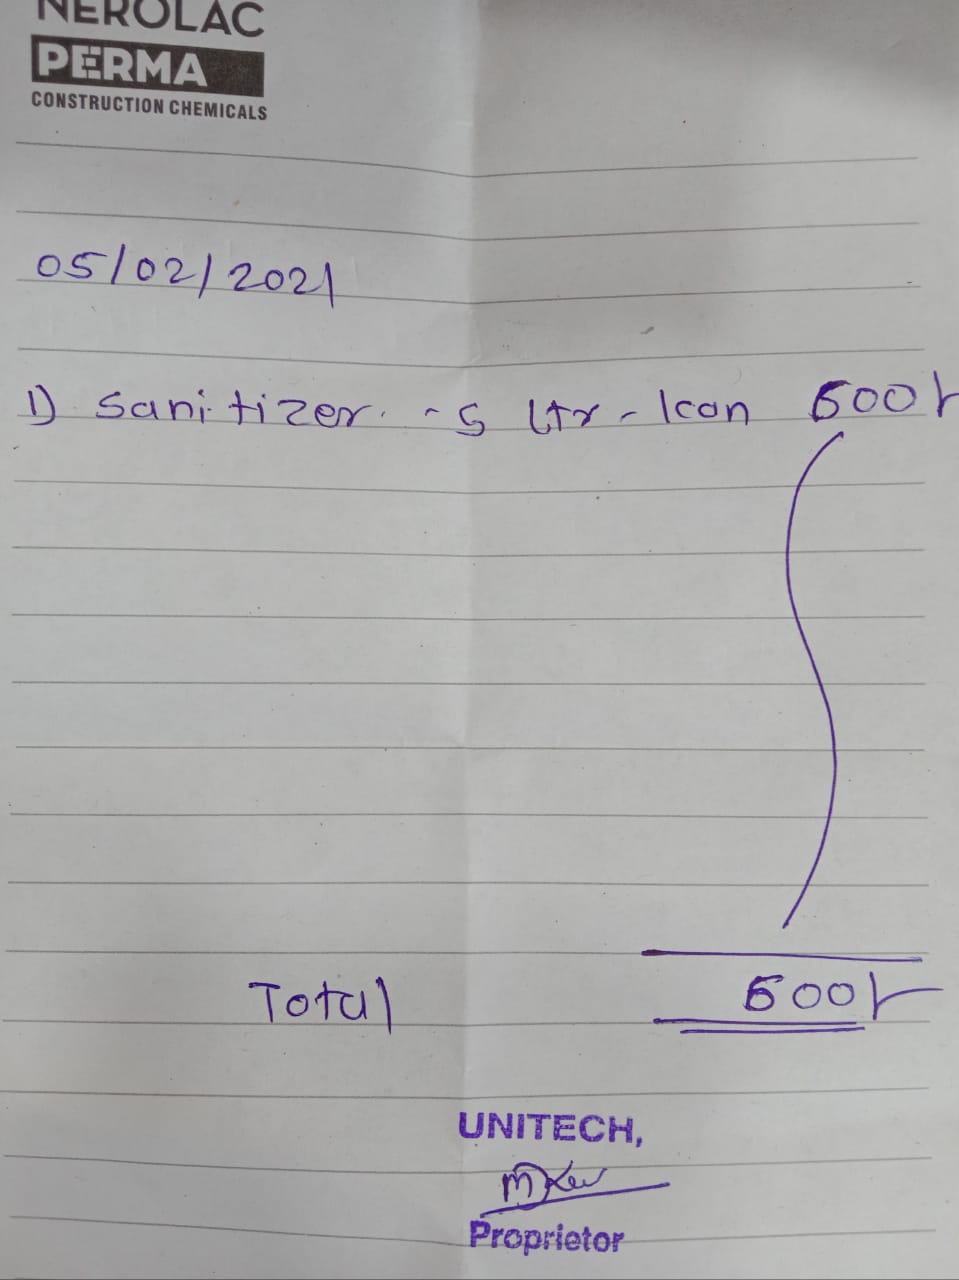 NEROLAC
PERMA
CONSTRUCTION CHEMICALS
05/02/2021
1) Sanitizer - 5 Ltr - 1can 600/-
Total 600/-
UNITECH,
Proprietor